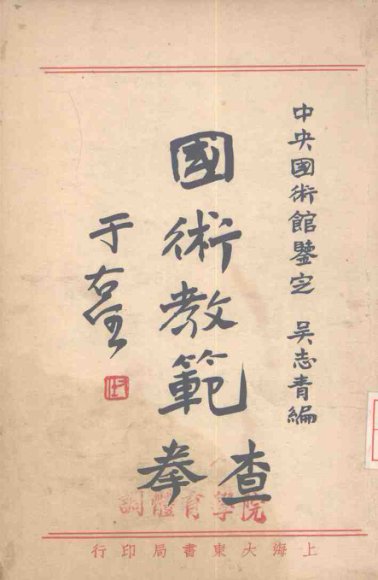 中央國術館鑒定 吴志青編
國術教範
查拳
于右任
體育學院
上海大東書局印行